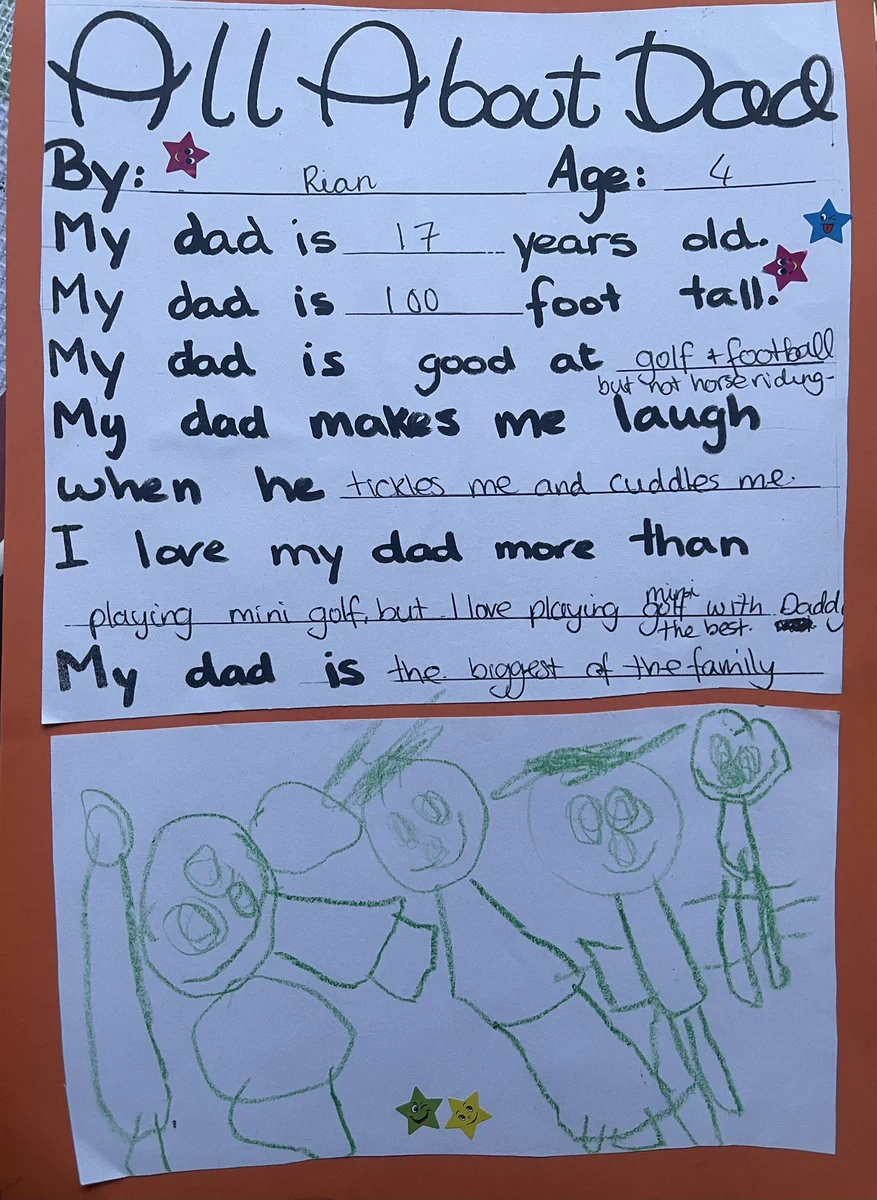 All About Dad
By: Rian Age: 4
My dad is 17 years old.
My dad is 100 foot tall.
My dad is good at golf + football
but not horseriding-
My dad makes me laugh
when he tickles me and cuddles me.
I love my dad more than
playing mini golf, but I love playing mini golf with Daddy
the best.
My dad is the biggest of the family